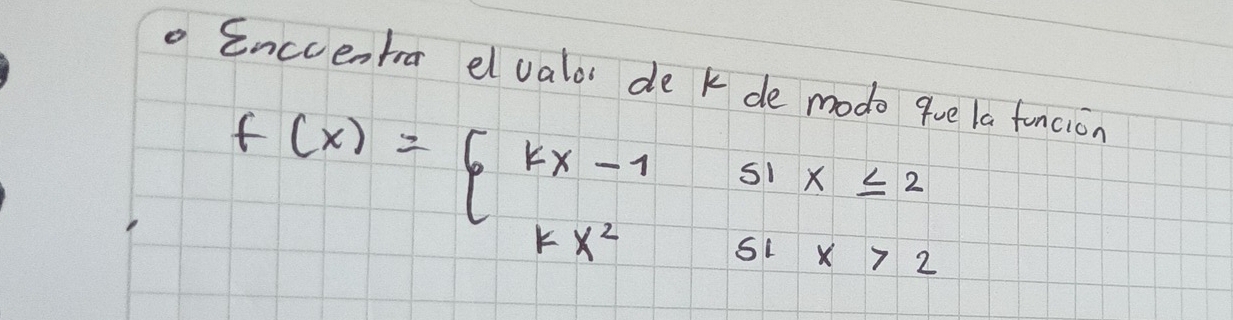 • Encuentra el valor de k de modo que la función
f(x) = { kx - 1 si x ≤ 2
kx² si x > 2